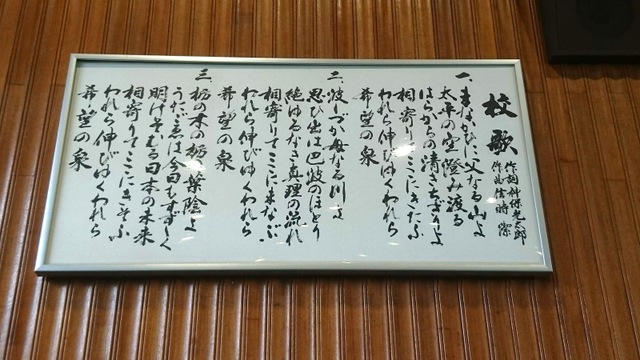 校歌
作詞 神保光太郎
作曲 信時 潔
一、まなかひに父なる山よ
太平の空澄み渡る
はらからの清きちぎりよ
相寄りてここにきたふ
われら伸びゆくわれら
希望の泉
二、波しづか母なる川よ
思ひ出は巴波のほとり
絶ゆるなき真理の流れ
相寄りてここにまなぶ
われら伸びゆくわれら
希望の泉
三、栃の木の栃の葉陰よ
うたごゑは今日もすずしく
明けそむる日本の未来
相寄りてここにきそふ
われら伸びゆくわれら
希望の泉